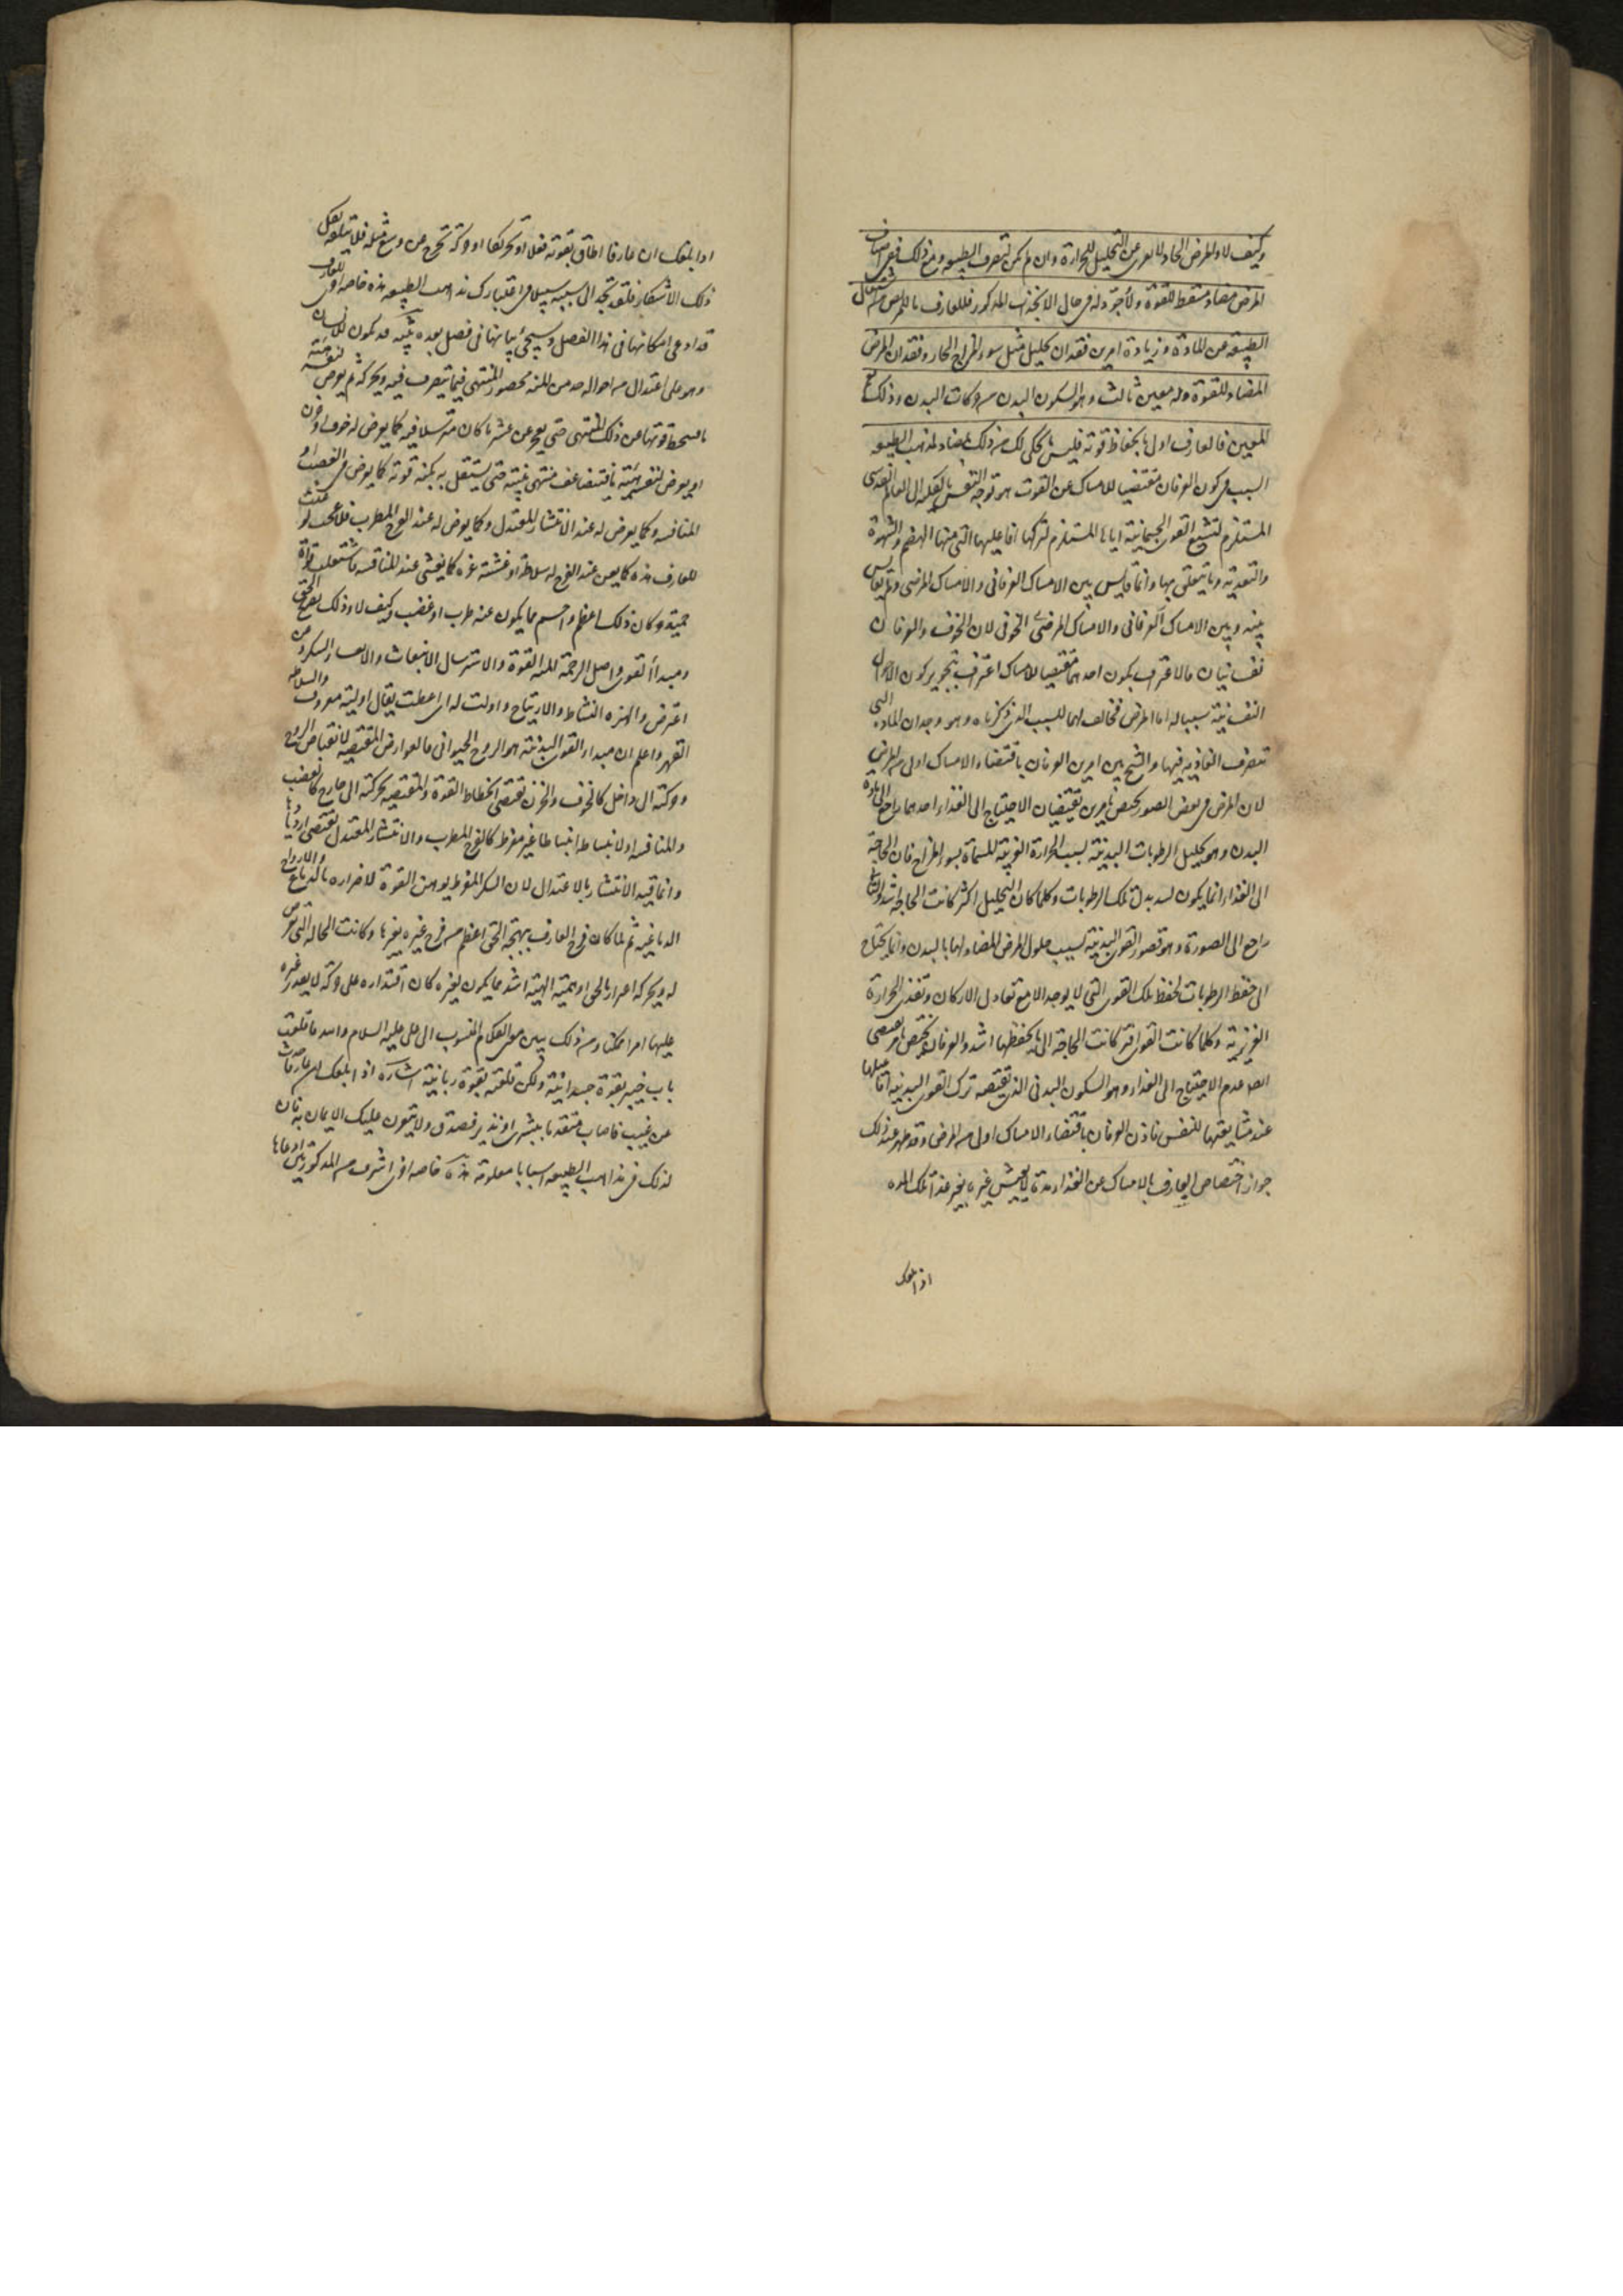 وكيف لا والمرض الحار لا يعرى عن التحليل للحرارة وان لم يكن لتصرف الطبيعه ومع ذلك ففى اصناف
المرض مضاد مسقط للقوة ولا وجود له فى حال الانجذاب المذكور فللعارف ما للمريض من اشتغال
الطبيعه عن المادة وزيادة امرين فقدان تحليل مثل سوء المزاج الحار وفقدان المرض
المضاد للقوة وله معين ثالث وهو السكون البدنى من حركات البدن وذلك نعم
المعين فالعارف اولى بانحفاظ قوته فليس ما يحكى لك من ذلك بمضاد لمذهب الطبيعه
السبب فى كون العرفان مقتضيا للامساك عن القوت هو توجه النفس بالكليه الى العالم القدسى
المستلزم لتشييع القوى الجسمانية اياها المستلزم لتركها افاعيلها التى منها الهضم والشهوة
والتغذية وما يتعلق بها وانما قايس بين الامساك العرفانى والامساك المرضى ولم يقايس
بينه وبين الامساك العرفانى والامساك الخوفى لان الخوف والعرفان
نفسانيان فالاعتراف بكون احدهما مقتضيا للامساك اعتراف بتجويز كون الاحوال
النفسانية سببا له اما المرض فمخالف لهما للسبب الذى ذكرناه وهو وجدان المادة التى
تتصرف الغاذية فيها والشيخ بين ان العرفان باقتضاء الامساك اولى من المرض
لان المرض فى بعض الصور يختص بامرين يقتضيان الاحتياج الى الغذاء احدهما راجع الى مادة
البدن وهو تحليل الرطوبات البدنية بسبب الحرارة الغريبة المسماة بسوء المزاج فان الحاجة
الى الغذاء انما يكون لسد بدل تلك الرطوبات وكلما كان التحليل اكثر كانت الحاجة اشد والثانى
راجع الى الصورة وهو قصور القوى البدنية بسبب حلول المرض المضاد لها بالبدن وانما يحتاج
الى حفظ الرطوبات لحفظ تلك القوى التى لا يوجد الا مع تعادل الاركان وتغذى الحرارة
الغريزية وكلما كانت القوى افتر كانت الحاجة الى ما يحفظها اشد والعرفان مختص بامر يقتضى
ايضا عدم الاحتياج الى الغذاء وهو السكون البدنى الذى يقتضيه ترك القوى البدنية افاعيلها
عند مشايعتها للنفس فاذن العرفان باقتضاء الامساك اولى من المرض وقد ظهر عند ذلك
جواز اختصاص العارف بالامساك عن الغذاء مدة لا يعيش غيره بغير غذاء تلك المدة
اذا بلغك
اذا بلغك ان عارفا اطاق بقوته فعلا او تحريكا او حركة تخرج عن وسع مثله فلا تتلقه بكل
ذلك الاستنكار فلقد تجد الى سببه سبيلا فى اعتبارك مذاهب الطبيعه هذه خاصة اخرى للعارف
قد ادعى امكانها فى هذا الفصل وسيجئ بيانها فى فصل بعده تنبيه قد يكون للانسان
وهو على اعتدال من احواله حد من المنة محصور المنتهى فيما يتصرف فيه ويحركه ثم يعرض لنفسه هيئة
ما تنحط قوتها عن ذلك المنتهى حتى يعجز عن عشر ما كان مسترسلا فيه كما يعرض له خوف او حزن
او يعرض لنفسه هيئة ما فتضاعف منتهى منته حتى يستقل به بكنه قوته كما يعرض فى الغضب او
المنافسة وكما يعرض له عند الانتشار المعتدل وكما يعرض له عند الفرح المطرب فلا عجب لو عنت
للعارف هزة كما يعن عند الفرح له سلاطة او غشيته عزة كما يغشى عند المنافسة فاشتعلت قواه
حمية وكان ذلك اعظم واجسم مما يكون عند طرب او غضب وكيف لا وذلك بصريح الحق
ومبدأ القوى واصل الرحمة المنة القوة والاسترسال الانبعاث والانتشار السكر وعن
اعترض والهزة النشاط والارتياح واولت له اى اعطت يقال اوليته معروفا والسلاطة
القهر واعلم ان مبداء القوى البدنية هو الروح الحيوانى فالعوارض المقتضية لانقباض الروح
وحركته الى داخل كالخوف والحزن تقتضى انحطاط القوة والمقتضية لحركته الى خارج كالغضب
والمنافسة او لانبساط انبساطا غير مفرط كالفرح المطرب والانتشار المعتدل تقتضى ازديادها
وانما قيد الانتشار بالاعتدال لان السكر المفرط يوهن القوة لاضراره بالدماغ والارواح
الدماغية ثم لما كان فرح العارف ببهجة الحق اعظم من فرح غيره بغيرها وكانت الحالة التى تعرض
له ويحركه اعتزازا بالحق او حمية الهية اشد مما يكون لغيره كان اقتداره على حركة لا يقدر غيره
عليها امرا ممكنا ومن ذلك يتبين معنى الكلام المنسوب الى على عليه السلام والله ما قلعت
باب خيبر بقوة جسدانية ولكن قلعته بقوة ربانية اشارة اذا بلغك ان عارفا حدث
عن غيب فاصاب متقدما ببشرى او نذير فصدق ولا يتعسرن عليك الايمان به فان
لذلك فى مذاهب الطبيعه اسبابا معلومة هذه خاصة اخرى اشرف من المذكورتين ادعاها